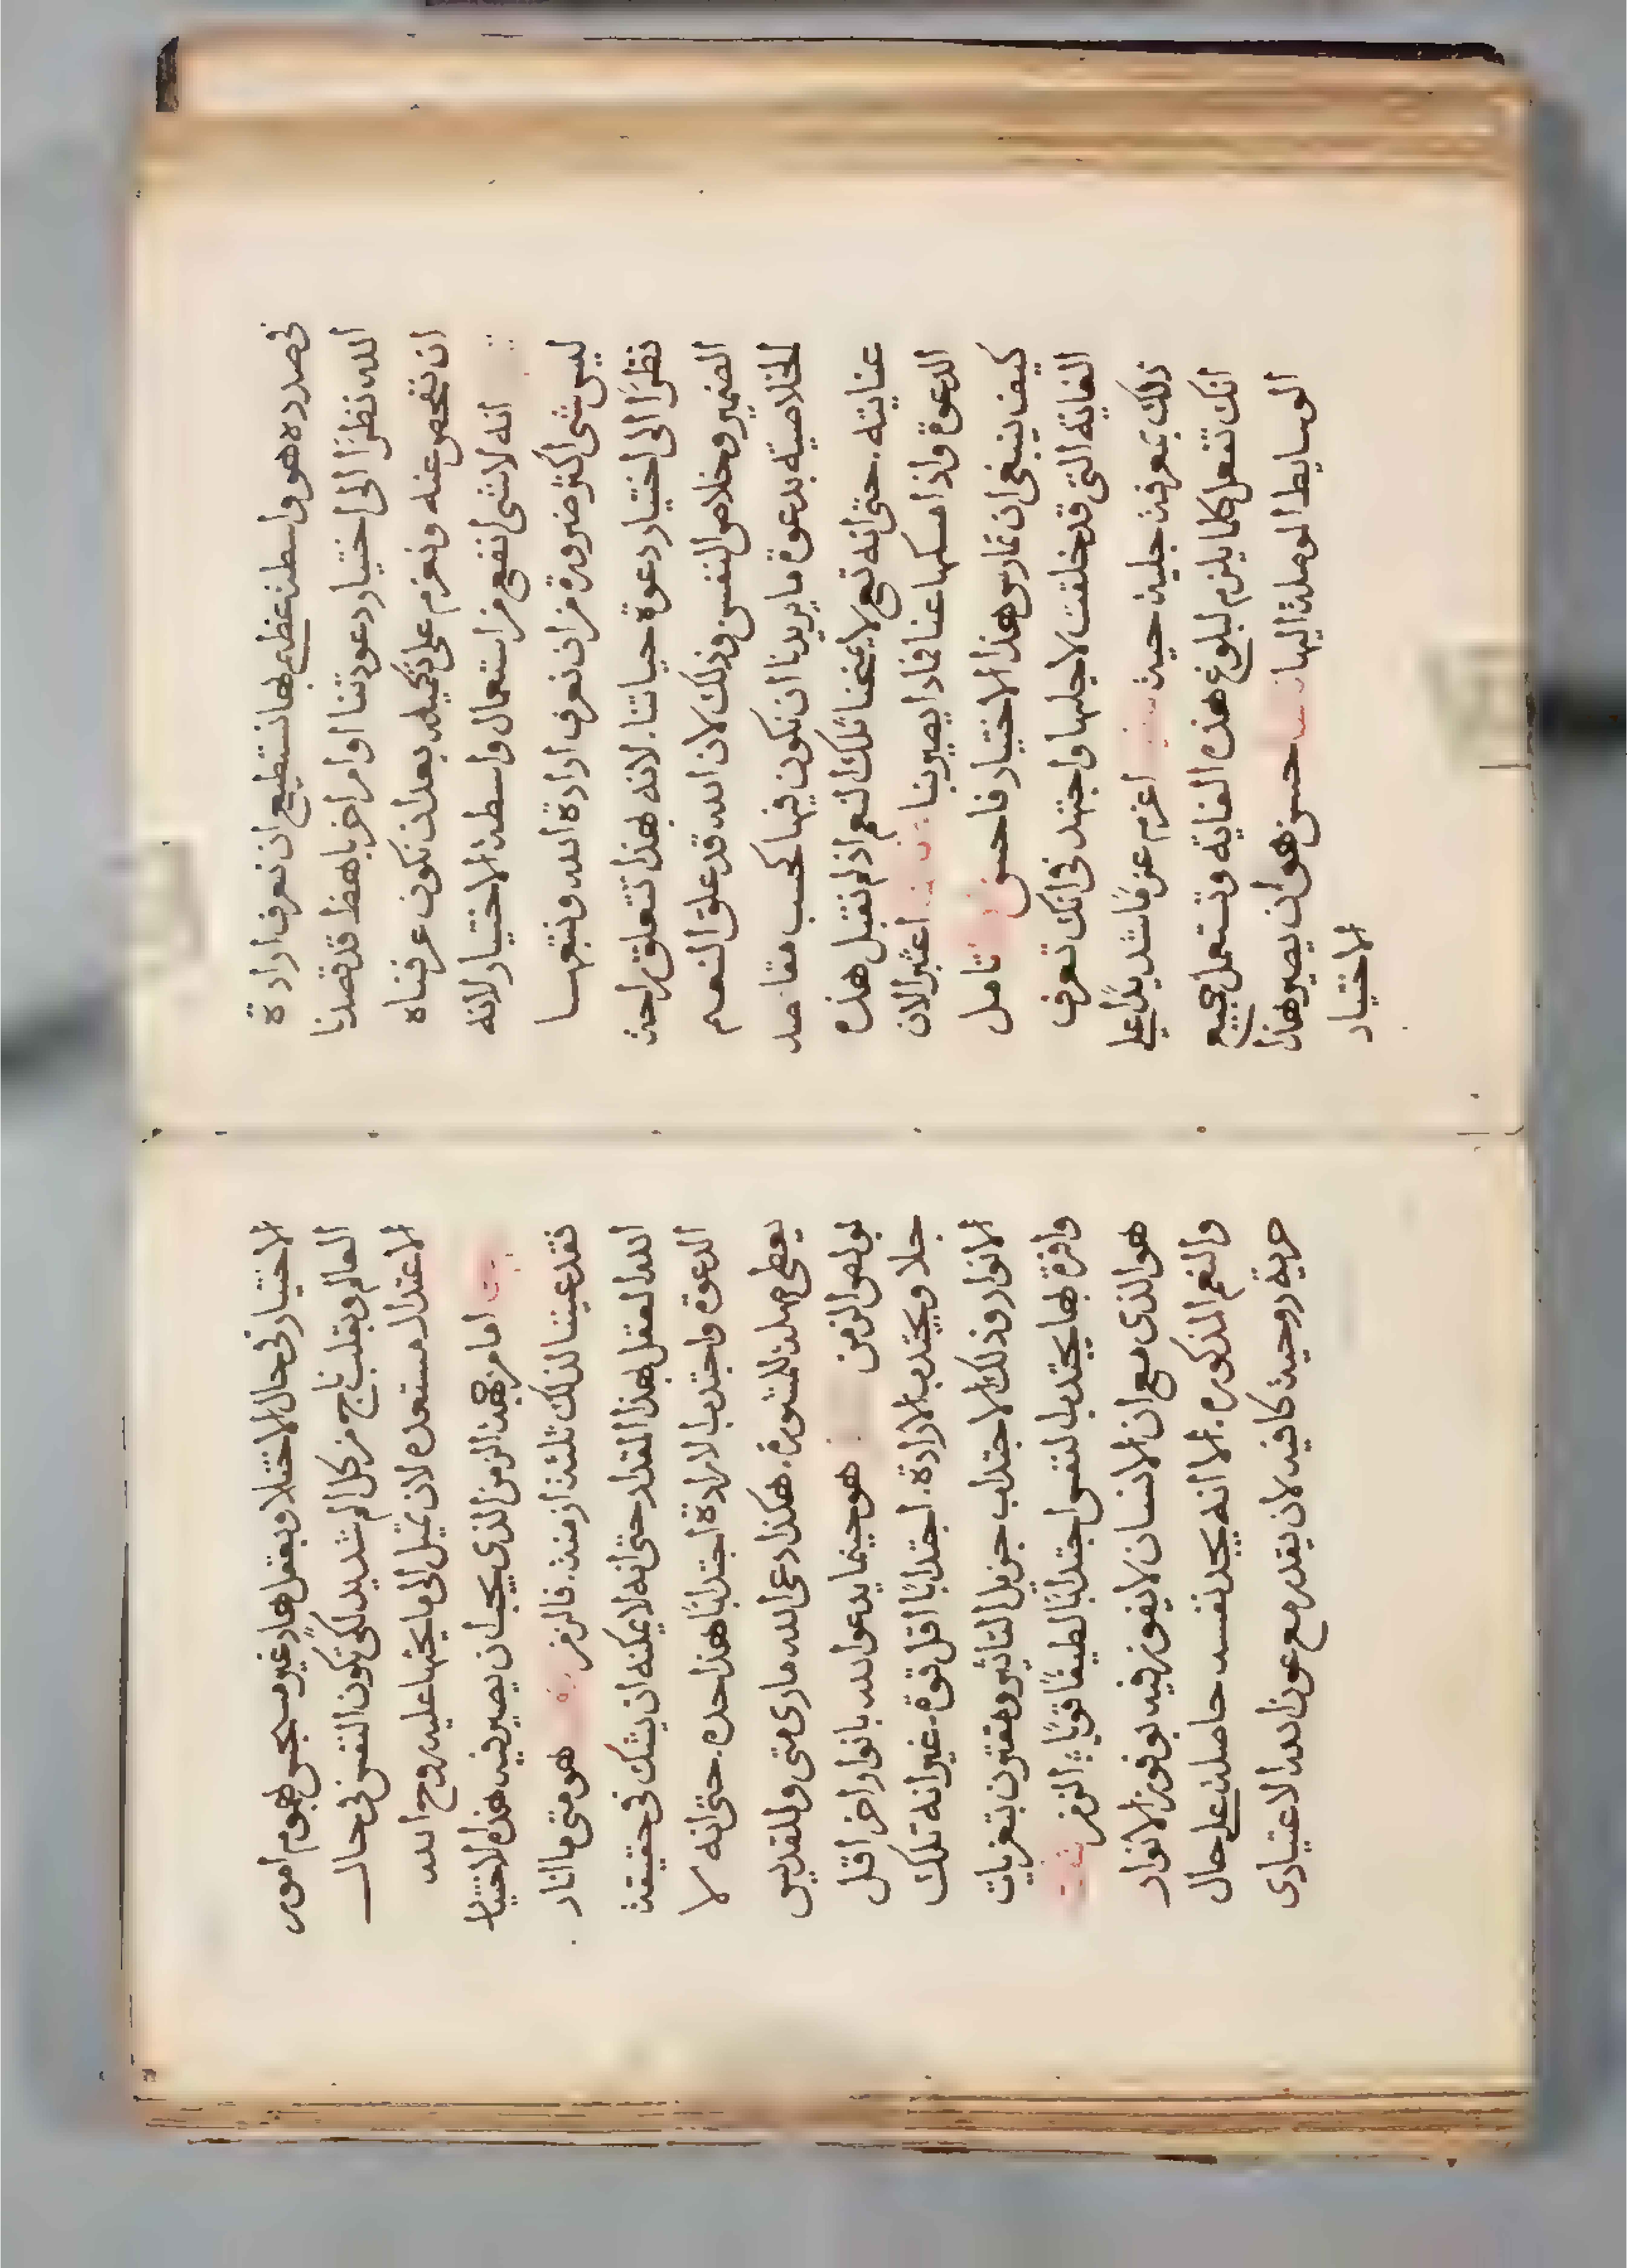 في صدده هو واسطه عظيمه بها نستطيع ان نعرف ارادة
الله نظرًا الى اختيار دعوتنا او امر اخر باهظ قد قصدنا
ان نفحص عنه ونعزم على تكميله بعد ان نكون عرفناه
انه لا شي انفع من استعمال واسطة الاختيار لانه
ليس شي اكثر ضرورة من ان نعرف ارادة الله ونتبعها
نظرًا الى اختيار دعوة حياتنا. لانه بهذا تتعلق راحة
الضمير وخلاص النفس وذلك لان الله قد علق النعم
الخلاصية بدعوة ما يريدنا ان نكون فيها كحسب مقاصد
عنايته. حتى انه تعالى لا يمنحنا تلك النعم اذ لم نقبل هذه
الدعوة واذا مسكها عنا فماذا يصير بنا اعتبر الان
كيف ينبغي ان تمارس هذا الاختيار فاحسن تامل
الغاية التي قد خلقت لاجلها واجتهد في انك تعرف
ذلك بمعرفة جلية حيث اعزم عزمًا شديدًا على
انك تفعل كلما يلزم لبلوغ هذه الغاية وتستعمل جميع
الوسايط الموصلة اليها حسن هو ان يصير هذا
الاختيار
الاختيار في حال الاختلا وبعقل هادٍ غير مسجس بهموم امور
العالم وبقلب ناج من كل الم شديد لكي تكون النفس في حال
الاعتدال مستعده لان تميل الى ما يحثها عليه روح الله
اما من جهة الزمن الذي يجب ان يصير فيه هذا الاختيار
فقد عيننا لذلك ثلثة ازمنة. فالزمن هو متى ما انار
الله العقل بهذا المقدار حتى انه لا يمكنه ان يشك في حقيقة
الدعوة واجتدب الارادة اجتدابًا هذا حده. حتى انه لا
يعطي مهلة للمشورة. هكذا دعى الله ماري متى والقديس
بولص الزمن هو حينما يدعو الله بانوار اخر اقل
جلا ويجتدب الارادة. اجتدابًا اقل قوة. غير انه تلك
الانوار وذلك الاجتداب جزيل التاثير ومقترن بتعزيات
وافرة بها يجتدب النفس اجتدابًا لطيفًا قويًا الزمن
هو الذي مع ان الانسان لا يفوز فيه بوفور الانوار
والنعم المذكوره. الا انه يجد نفسه حاصلة على حال
حرية روحية كافيه لان يقدر مع عون الله الاعتيادي